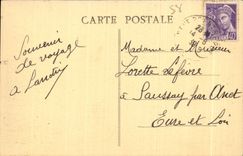 54
CARTE POSTALE
Souvenir
de voyage
à
Madame et Monsieur
Lorette Lefèvre
à Saussay par Anet
Eure et Loir